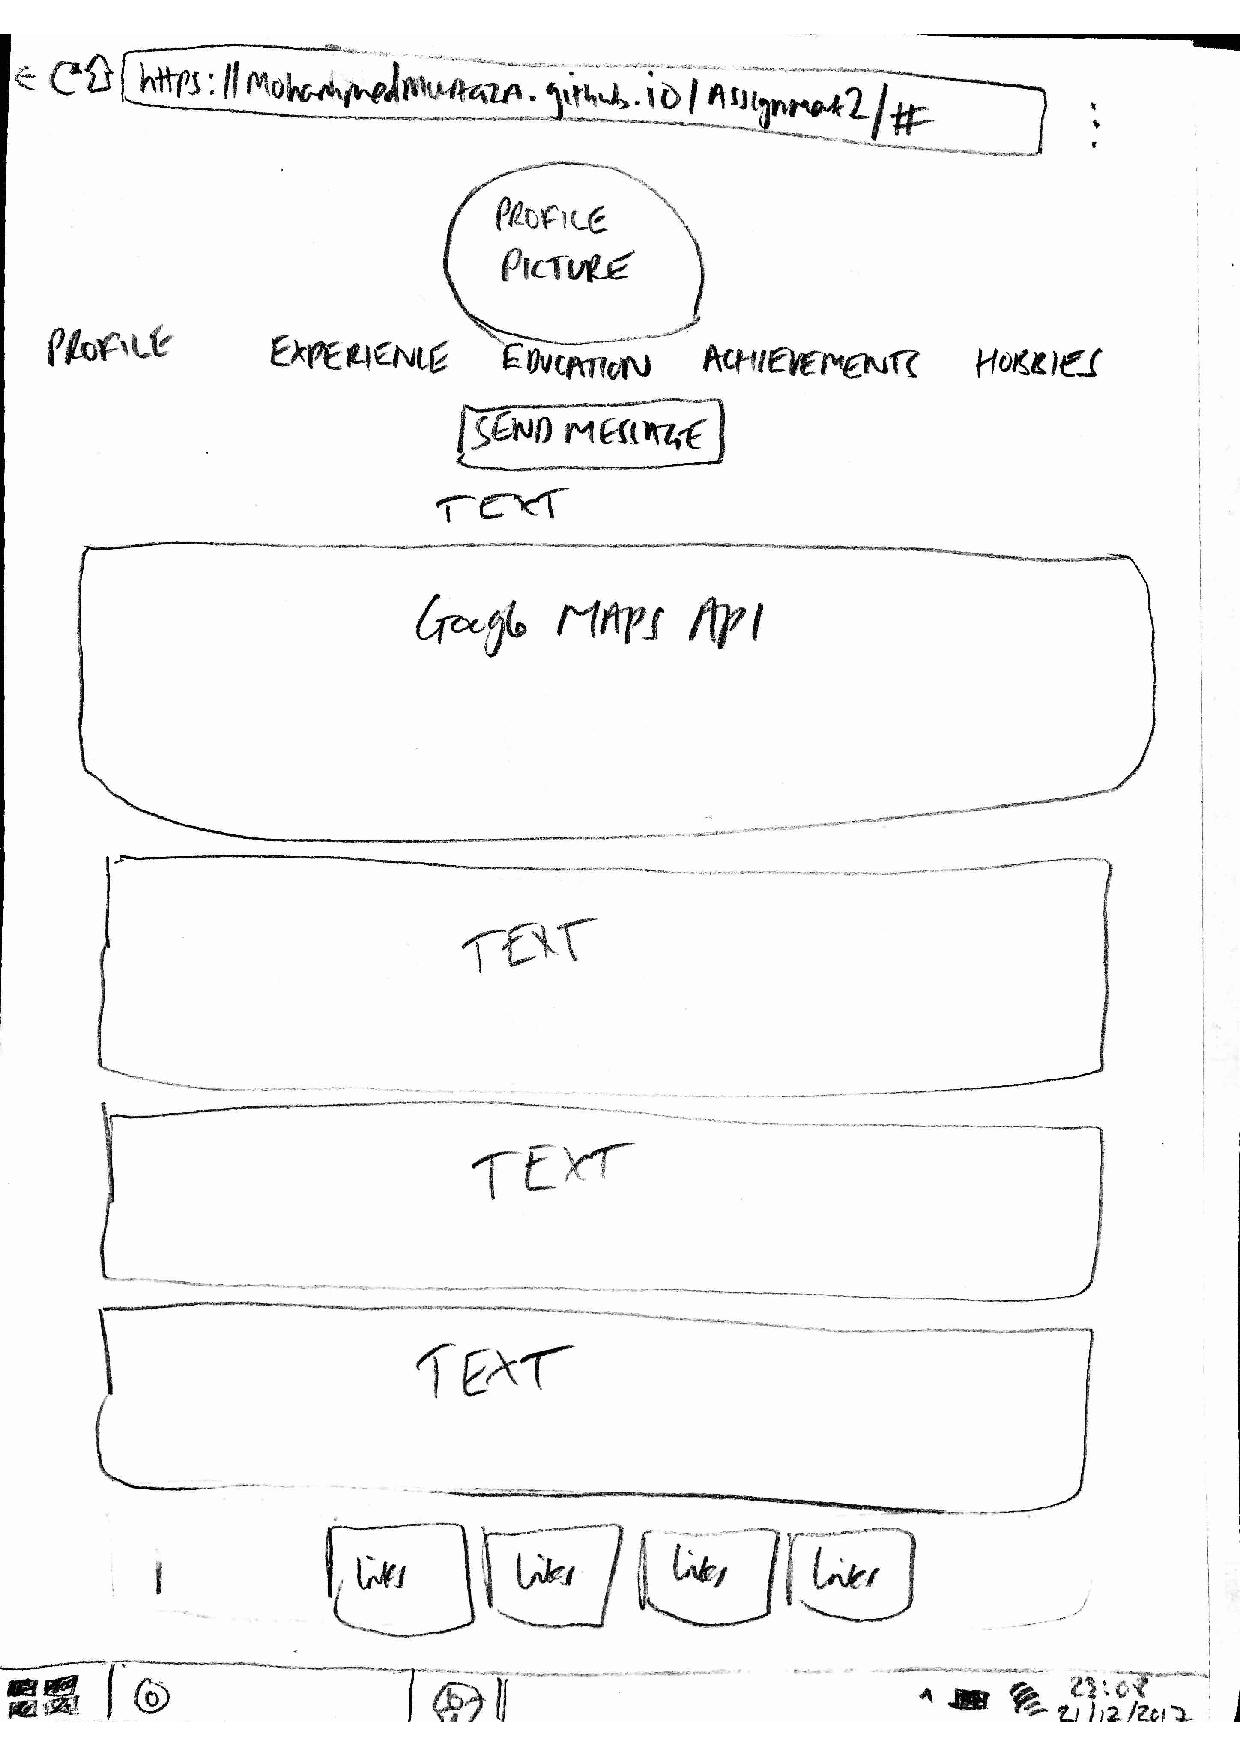 https://MohammedMurtaza.github.io/Assignment2/#
PROFILE
PICTURE
PROFILE EXPERIENCE EDUCATION ACHIEVEMENTS HOBBIES
SEND MESSAGE
TEXT
Google MAPS API
TEXT
TEXT
TEXT
Links Links Links Links
23:08
21/12/2017